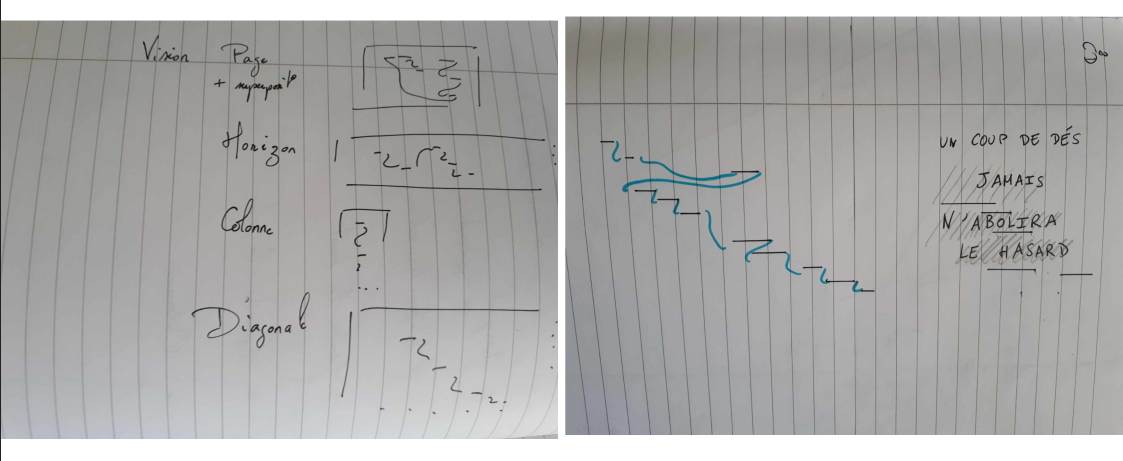 Vision Page
+ superposit°
Horizon
Colonne
Diagonale
UN COUP DE DÉS
JAMAIS
N'ABOLIRA
LE HASARD